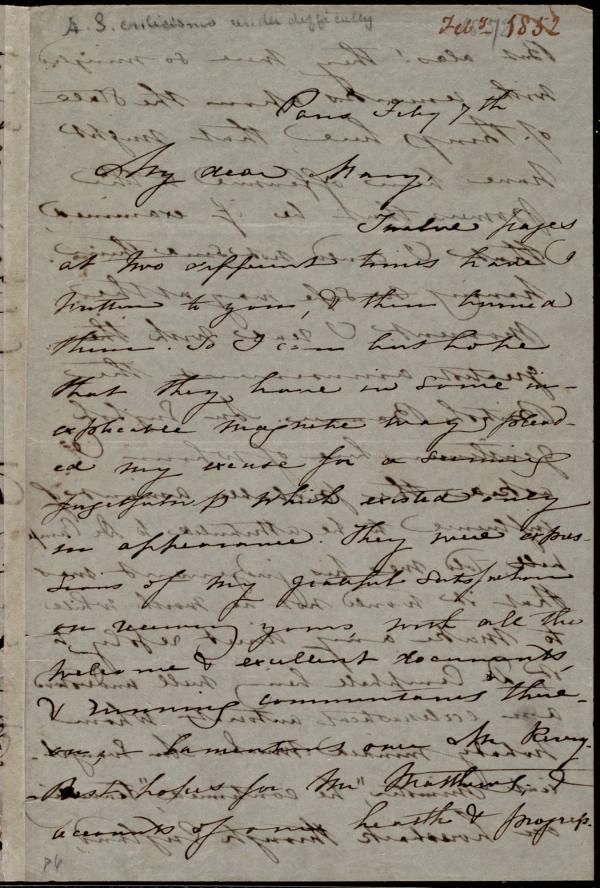 A. S. criticisms under difficulty
Feby 1852
Paris Feby 7th
My dear Mary,
Twelve pages
at two different times have I
written to you, & then burned
them. So I can but hope
that they have in some in-
explicable magnetic way plead-
ed my excuse for a seeming
forgetfulness which existed only
in appearance. They were expres-
sions of my grateful satisfaction
on receiving yours, with all the
welcome & excellent documents,
& running commentaries there-
on. Lamentations over Mr
Best hopes for Mr Matthews &
accounts of own health & progress.